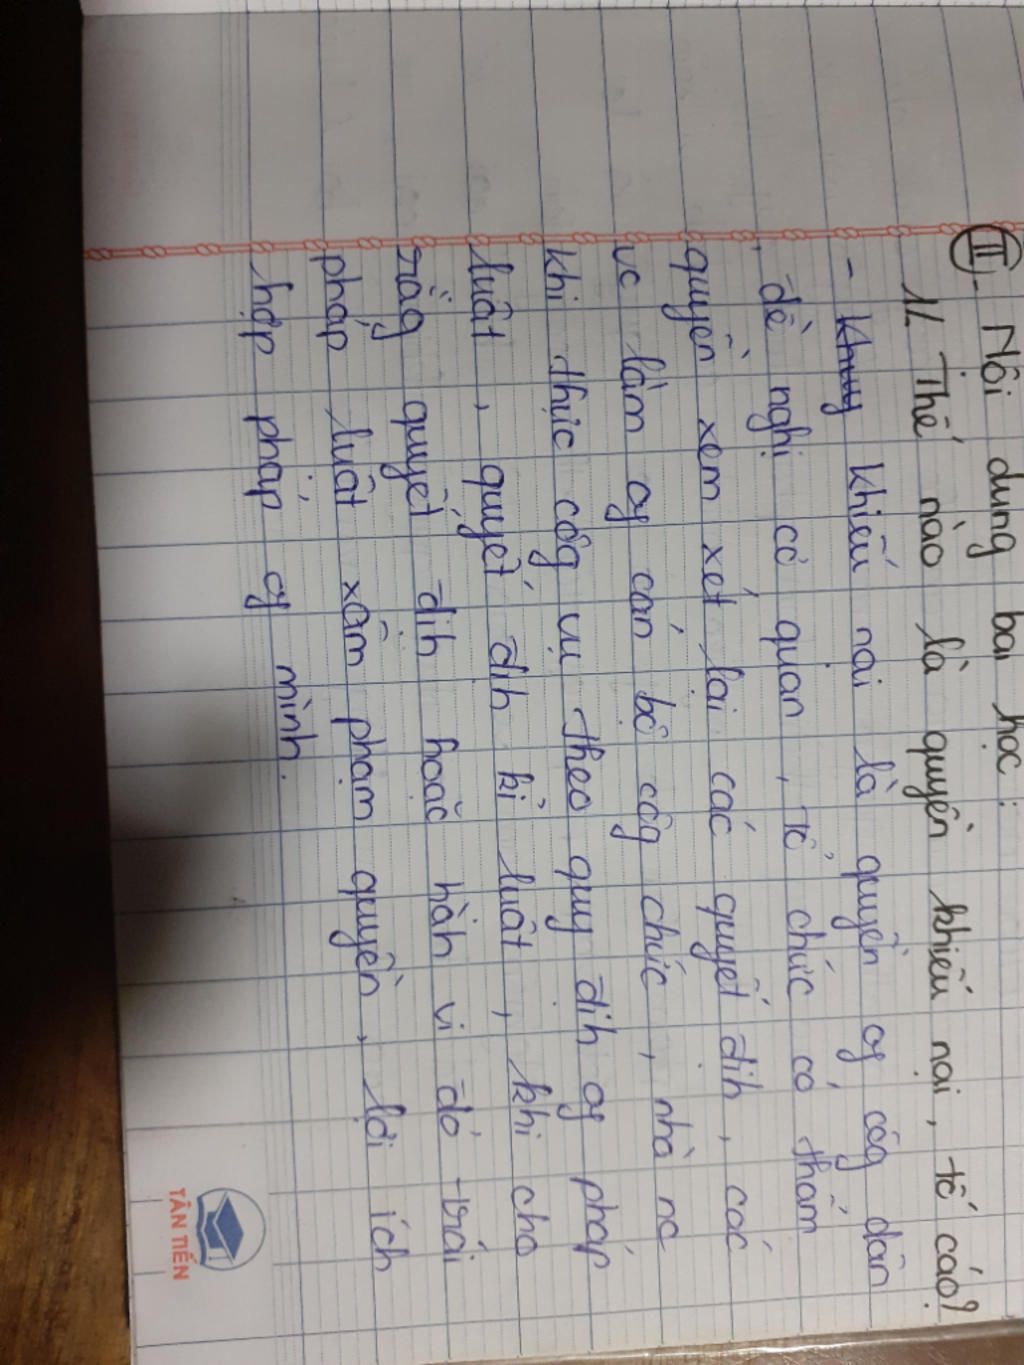 II - Nôi dung bai học:
1/. Thế nào là quyền khiếu nại, tố cáo?
- khiếu nại là quyền củ côg dân
đề nghị cơ quan, tổ chức có thẩm
quyền xem xét lại các quyết dih, các
vc làm củ cán bộ côg chức, nhà nc
khi thực côg vụ theo quy dih củ pháp
luật, quyết dih kỉ luật, khi cho
rằg quyết dih hoặc hàh vi đó trái
pháp luật xâm phạm quyền, lợi ích
hợp pháp củ mình.
TÂN TIẾN